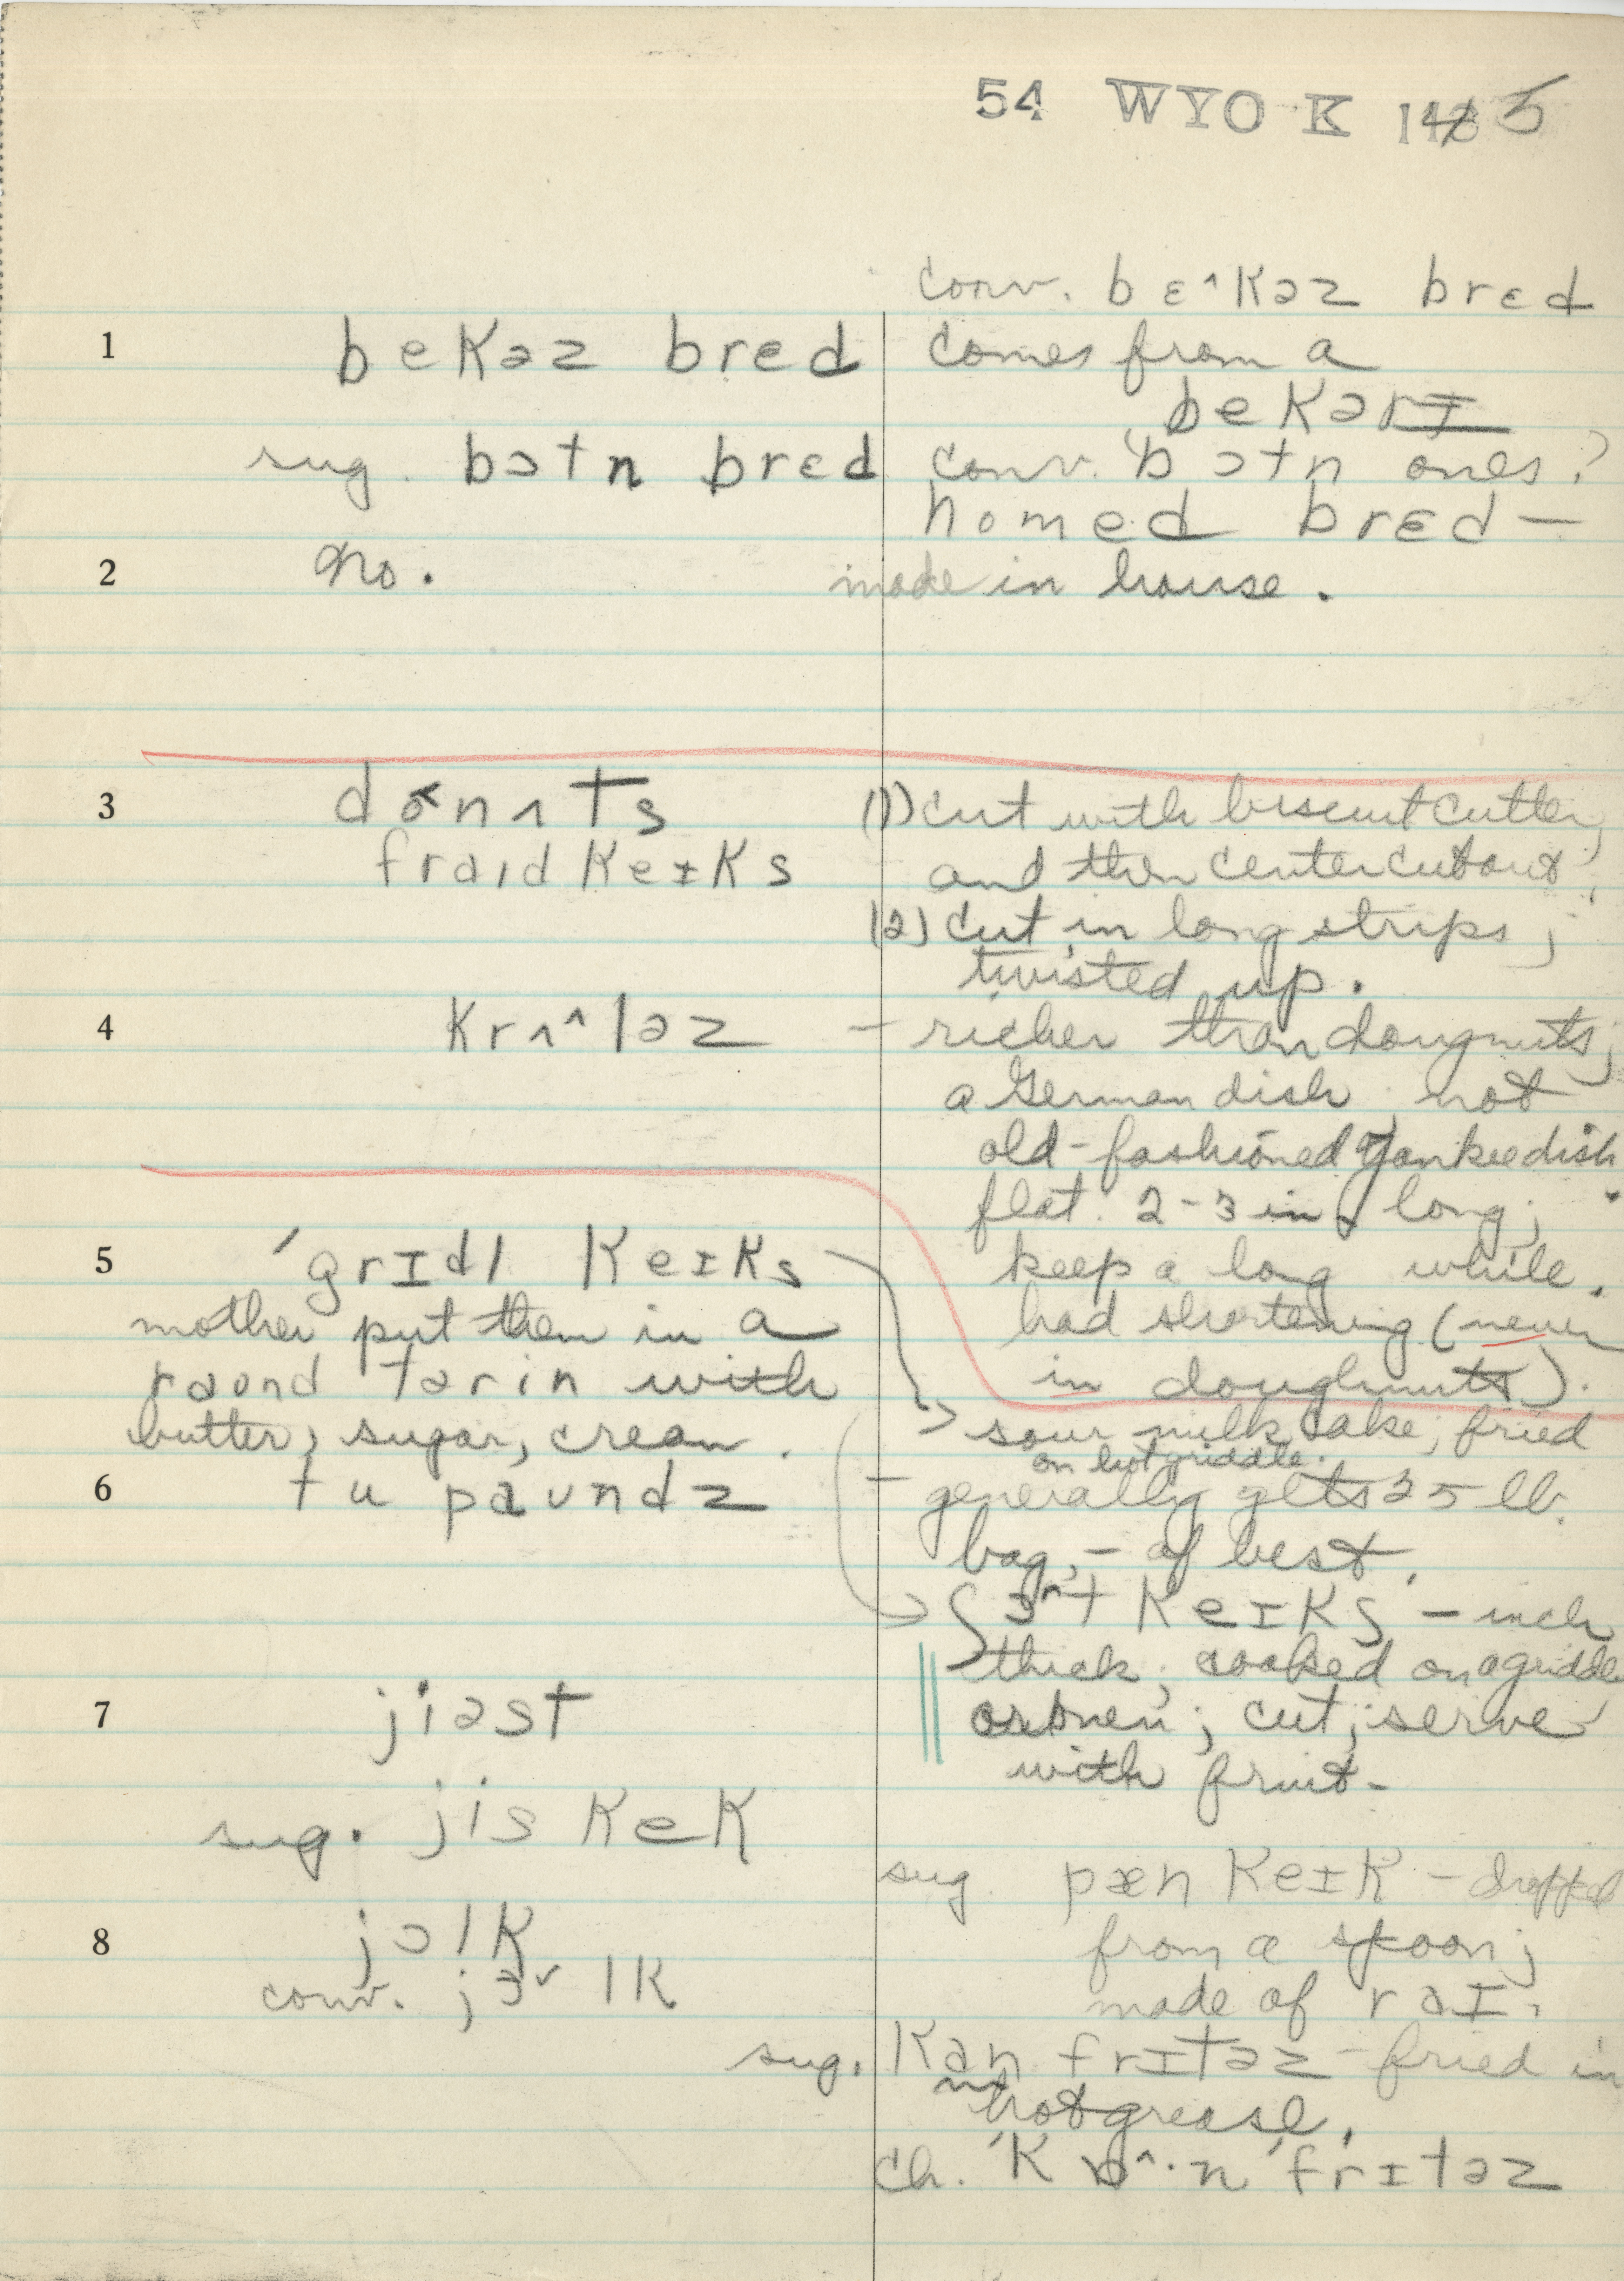 54 WYO K 14 5
conv. bɛ^kəz brɛd
1 bekəz bred comes from a
bekərɪ
sug. bɔtn brɛd conv. bɔtn ones?
homed brɛd —
2 no. made in house.
3 donʌts (1) cut with biscuit cutter,
fraɪd keɪks and then center cut out;
(2) cut in long strips;
twisted up.
4 krʌ^ləz – richer than dougnuts;
a German dish not
old-fashioned Yankee dish
flat. 2-3 in. long;
5 ˈgrɪdl keɪks keep a long while.
mother put them in a had shortening (never
raond tərin with in doughnuts).
butter, sugar, cream. → sour milk cake; fried
on hot griddle.
6 tu paʊndz – generally gets 25 lb.
bag, – of best.
ʃɜ^t keɪks – inch
thick; cooked on a griddle
7 jiəst or oven; cut; serve
with fruit-
sug. jis kek
sug pæn keɪk – dropped
8 jolk from a spoon;
conv. jɜ˅lk made of raɪ.
sug. kan frɪtəz – fried in
hot grease.
ch. ˈkɒ^·n ˈfrɪtəz